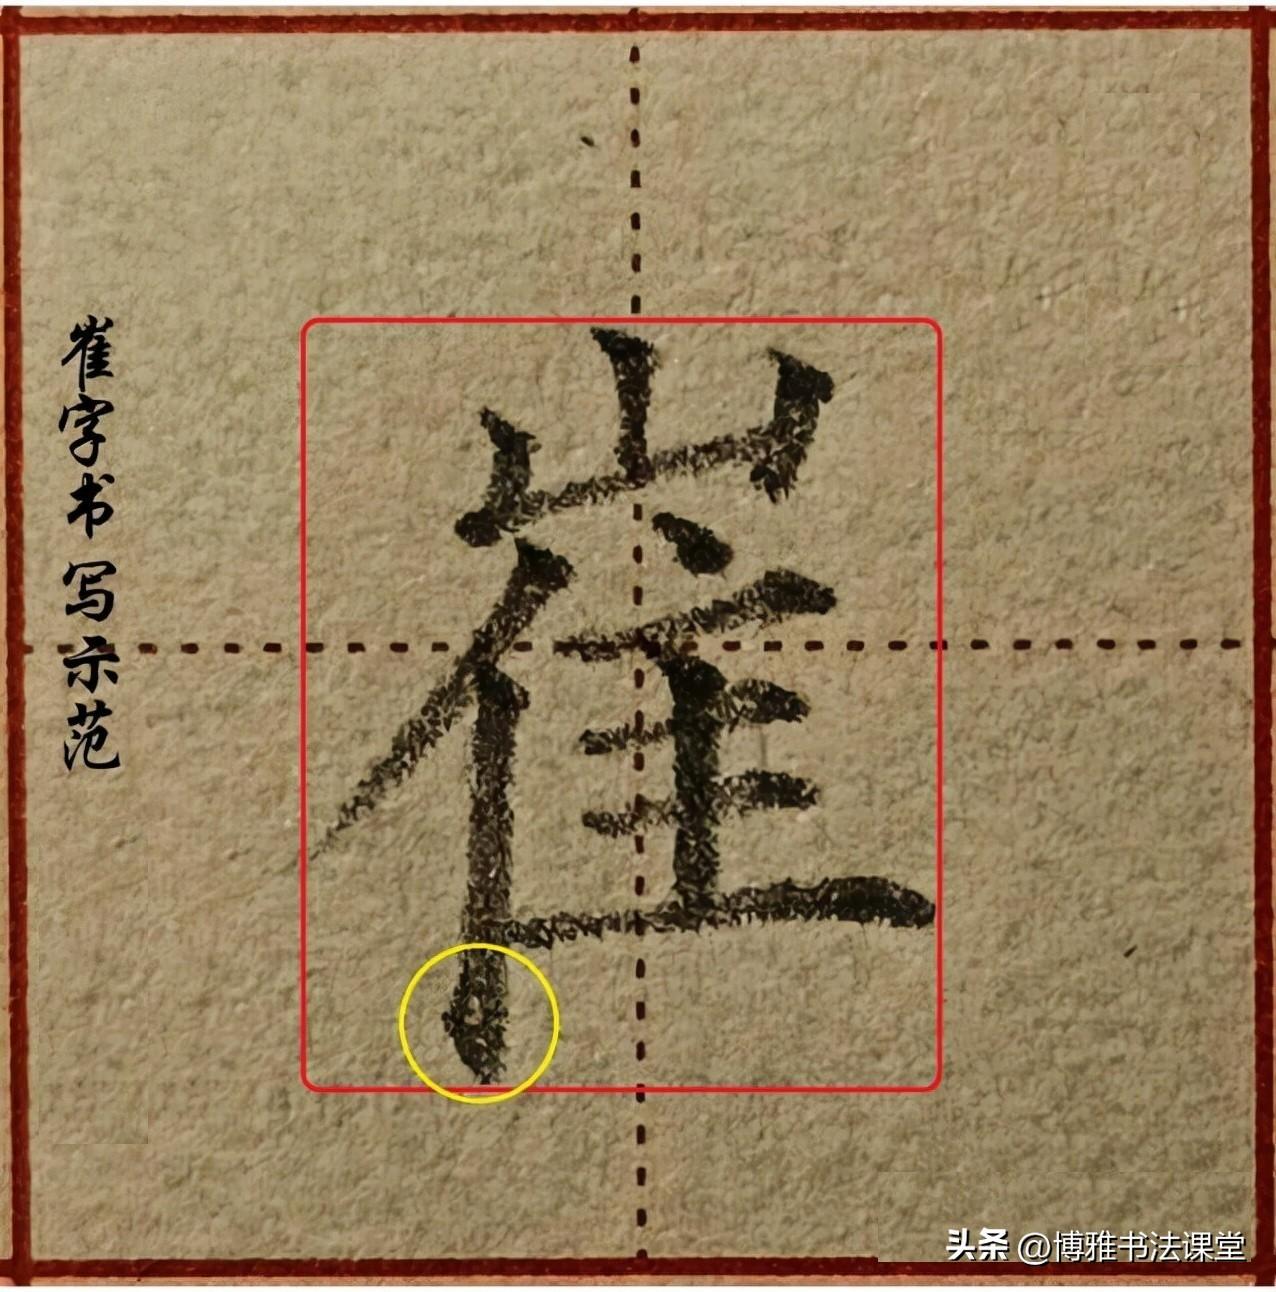 崔字书写示范
崔
头条 @博雅书法课堂